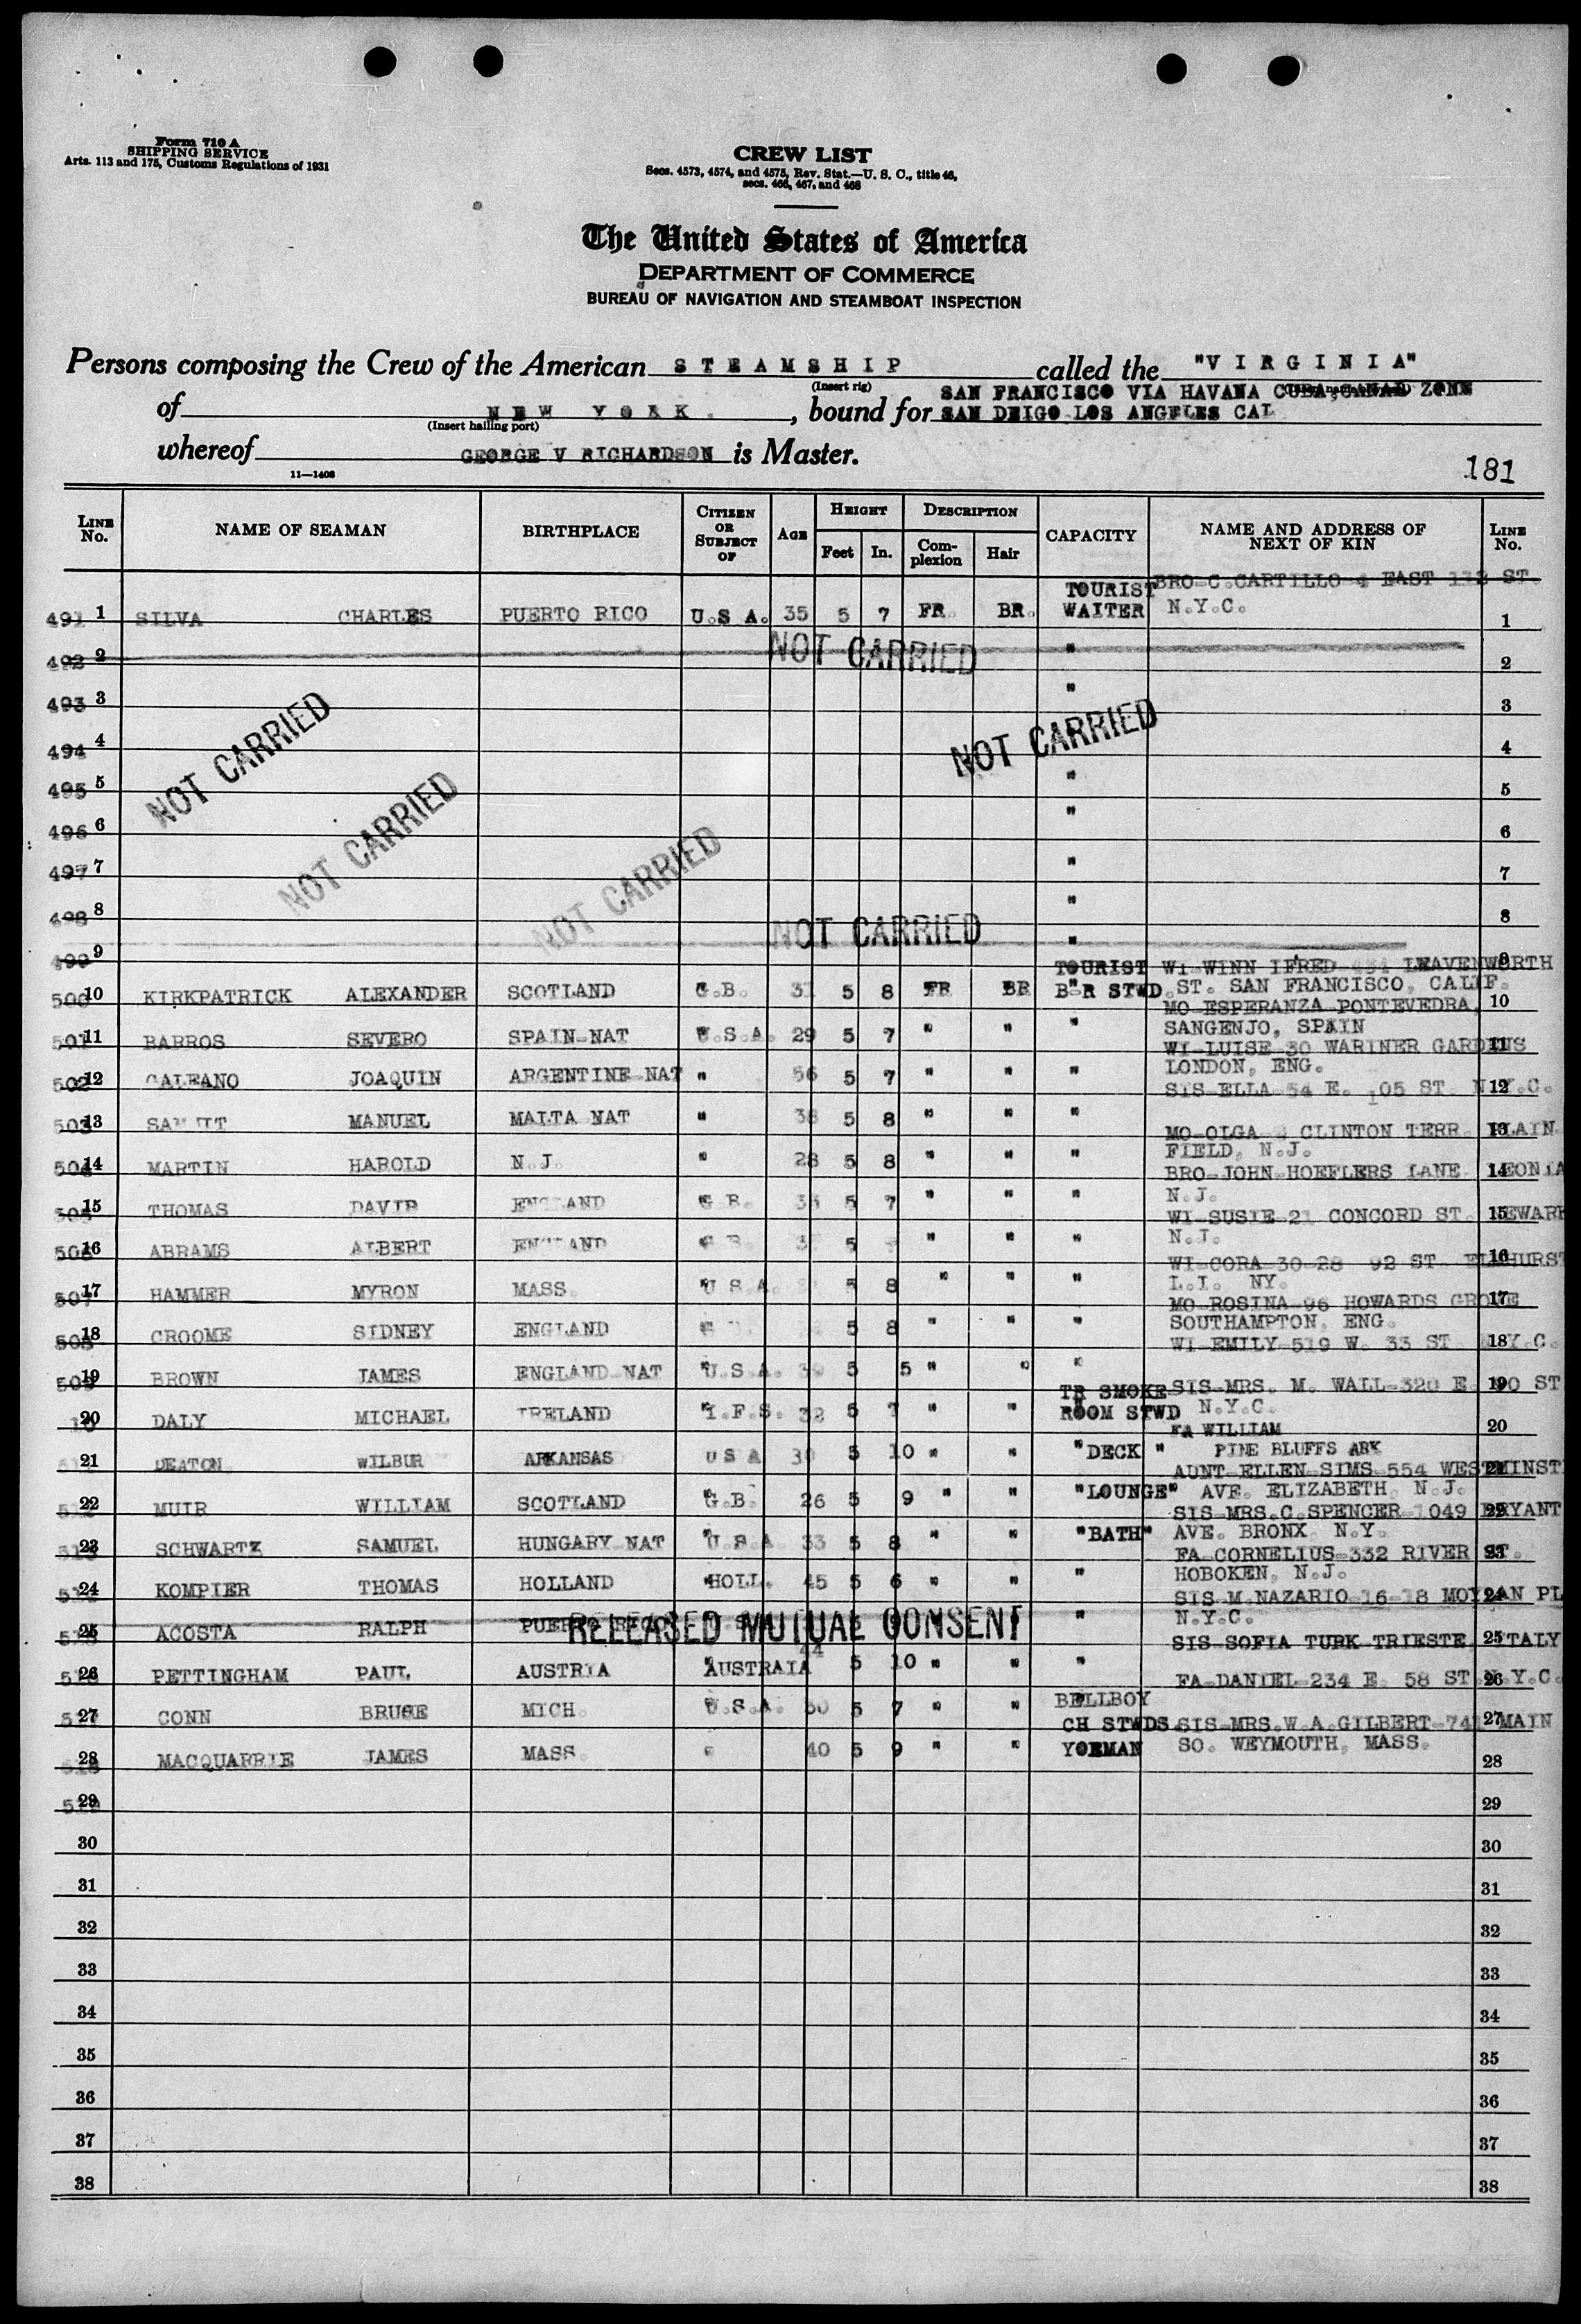 Form 710 A
SHIPPING SERVICE
Arts. 113 and 175, Customs Regulations of 1931
CREW LIST
Secs. 4573, 4574, and 4575, Rev. Stat.—U. S. C., title 46,
secs. 466, 467, and 468
The United States of America
DEPARTMENT OF COMMERCE
BUREAU OF NAVIGATION AND STEAMBOAT INSPECTION
Persons composing the Crew of the American STEAMSHIP called the "VIRGINIA"
(Insert rig)
of NEW YORK. , bound for SAN FRANCISCO VIA HAVANA CUBA, CANAL ZONE
(Insert hailing port) SAN DEIGO LOS ANGELES CAL
whereof GEORGE V RICHARDSON is Master.
11—1408
181
LINE No. NAME OF SEAMAN BIRTHPLACE CITIZEN OR SUBJECT OF AGE HEIGHT Feet In. DESCRIPTION Complexion Hair CAPACITY NAME AND ADDRESS OF NEXT OF KIN LINE No.
TOURIST BRO-C.CARTILLO 4 EAST 112 ST.
491 1 SILVA CHARLES PUERTO RICO U.S A. 35 5 7 FR. BR. WAITER N.Y.C. 1
492 2 NOT CARRIED " 2
493 3 " 3
494 4 NOT CARRIED NOT CARRIED " 4
495 5 " 5
496 6 NOT CARRIED " 6
497 7 NOT CARRIED " 7
498 8 NOT CARRIED " 8
499 9 " 9
TOURIST WI-WINN IFRED LEAVENWORTH
500 10 KIRKPATRICK ALEXANDER SCOTLAND G.B. 5 8 FR BR B"R STWD. ST. SAN FRANCISCO, CALIF. 10
MO ESPERANZA PONTEVEDRA,
501 11 BARROS SEVERO SPAIN-NAT U.S.A. 29 5 7 " " " SANGENJO, SPAIN 11
WI-LUISE-30 WARINER GARDENS
502 12 GALEANO JOAQUIN ARGENTINE-NAT " 56 5 7 " " " LONDON, ENG. 12
SIS-ELLA-54 E. 105 ST. N.Y.C.
503 13 MANUEL MALTA NAT " 38 5 8 " " " 13
MO-OLGA CLINTON TERR. PLAIN
504 14 MARTIN HAROLD N.J. " 28 5 8 " " " FIELD, N.J. 14
BRO-JOHN-HOEFLERS LANE LEONIA
505 15 THOMAS DAVID ENGLAND G.B. 5 7 " " " N.J. 15
WI-SUSIE-21 CONCORD ST. NEWARK
506 16 ABRAMS ALBERT ENGLAND G B. 5 " " " N.J. 16
WI-CORA-30-28 92 ST ELMHURST
507 17 HAMMER MYRON MASS. U S.A. 5 8 " " " L.I. NY. 17
MO-ROSINA-96 HOWARDS GROVE
508 18 CROOME SIDNEY ENGLAND 5 8 " " " SOUTHAMPTON, ENG. 18
WI-EMILY-519 W. 33 ST. N.Y.C.
509 19 BROWN JAMES ENGLAND-NAT U.S.A. 39 5 5 " " " 19
TR SMOKE SIS-MRS. M. WALL-320 E. 90 ST
20 DALY MICHAEL IRELAND I.F.S. 32 5 7 " " ROOM STWD N.Y.C. 20
FA WILLIAM
21 DEATON WILBUR ARKANSAS U S A 30 5 10 " " "DECK " PINE BLUFFS ARK 21
AUNT-ELLEN-SIMS-554 WESTMINST
512 22 MUIR WILLIAM SCOTLAND G.B. 26 5 9 " " "LOUNGE" AVE. ELIZABETH, N.J. 22
SIS-MRS.C.SPENCER-1049 BRYANT
513 23 SCHWARTZ SAMUEL HUNGARY-NAT U.S.A 33 5 8 " " "BATH" AVE. BRONX, N.Y. 23
FA-CORNELIUS-332 RIVER ST.
24 KOMPIER THOMAS HOLLAND HOLL. 45 5 6 " " " HOBOKEN, N.J. 24
SIS-M.NAZARIO-16-18 MOYLAN PL
25 ACOSTA RALPH PUERTO RICO RELEASED MUTUAL CONSENT " N.Y.C. 25
SIS SOFIA TURK TRIESTE ITALY
26 PETTINGHAM PAUL AUSTRIA AUSTRAIA 44 5 10 " " " 26
FA-DANIEL-234 E. 58 ST.N.Y.C.
517 27 CONN BRUSE MICH. U.S.A. 30 5 7 " " BELLBOY 27
CH STWDS SIS-MRS.W.A.GILBERT-741 MAIN
518 28 MACQUARRIE JAMES MASS. " 40 5 9 " " YOEMAN SO. WEYMOUTH, MASS. 28
519 29 29
30 30
31 31
32 32
33 33
34 34
35 35
36 36
37 37
38 38